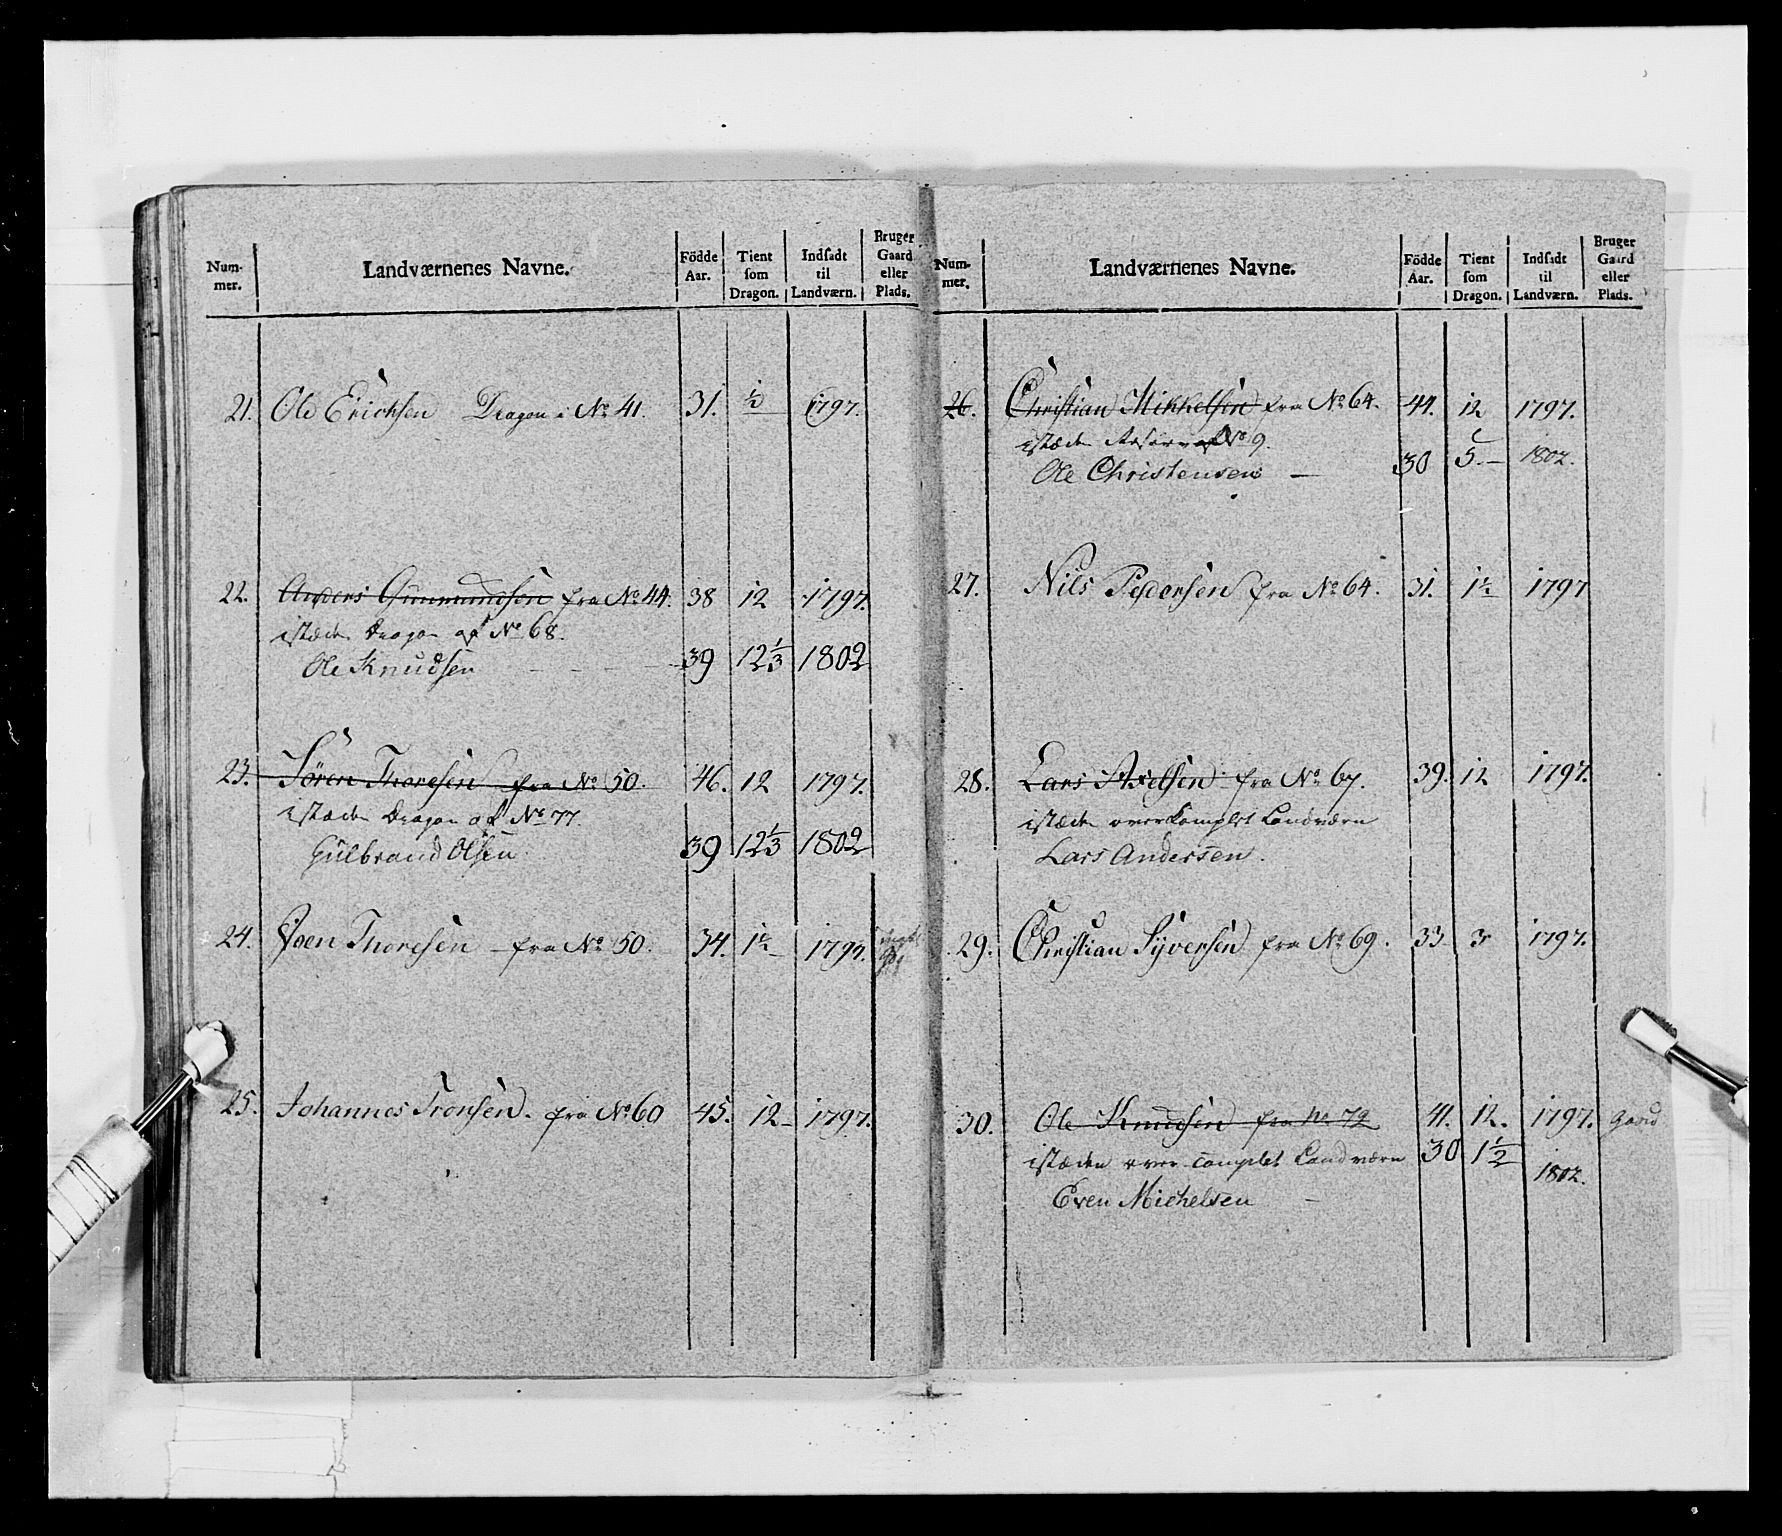 Num-mer. Landværnenes Navne. Födde Aar. Tient som Dragon. Indsadt til Landværn. Bruger Gaard eller Plads.
21. Ole Erichsen Dragon i No 41. 31. ½ 1797.
22. Anders Gunmundsen fra No 44. 38 12 1797.
istæden Dragon af No 68.
Ole Knudsen - - - 39 12⅓ 1802
23. Sören Thoresen fra No 50. 46. 12 1797.
istæden Dragon af No 77.
Gulbrand Olsen 39 12⅓ 1802
24. Joen Thoresen - fra No 50. 34. 1½ 1797.
25. Johannes Tronsen. fra No 60 45. 12 - 1797.
Num-mer. Landværnenes Navne. Födde Aar. Tient som Dragon. Indsadt til Landværn. Bruger Gaard eller Plads.
26. Christian Mikkelsen fra No 64. 44. 12 1797.
istæden Reserve No 9.
Ole Christensen - 30 5. - 1802.
27. Nils Pedersen fra No 64. 31. 1½ 1797
28. Lars Axelsen fra No 67. 39. 12 1797.
istæden overkomplet Landværn
Lars Andersen.
29. Christian Syversen fra No 69. 33 3 1797.
30. Ole Knudsen fra No 72 41. 12. 1797. Gaard
istæden over complet Landværn 30 1½ 1802.
Even Michelsen -